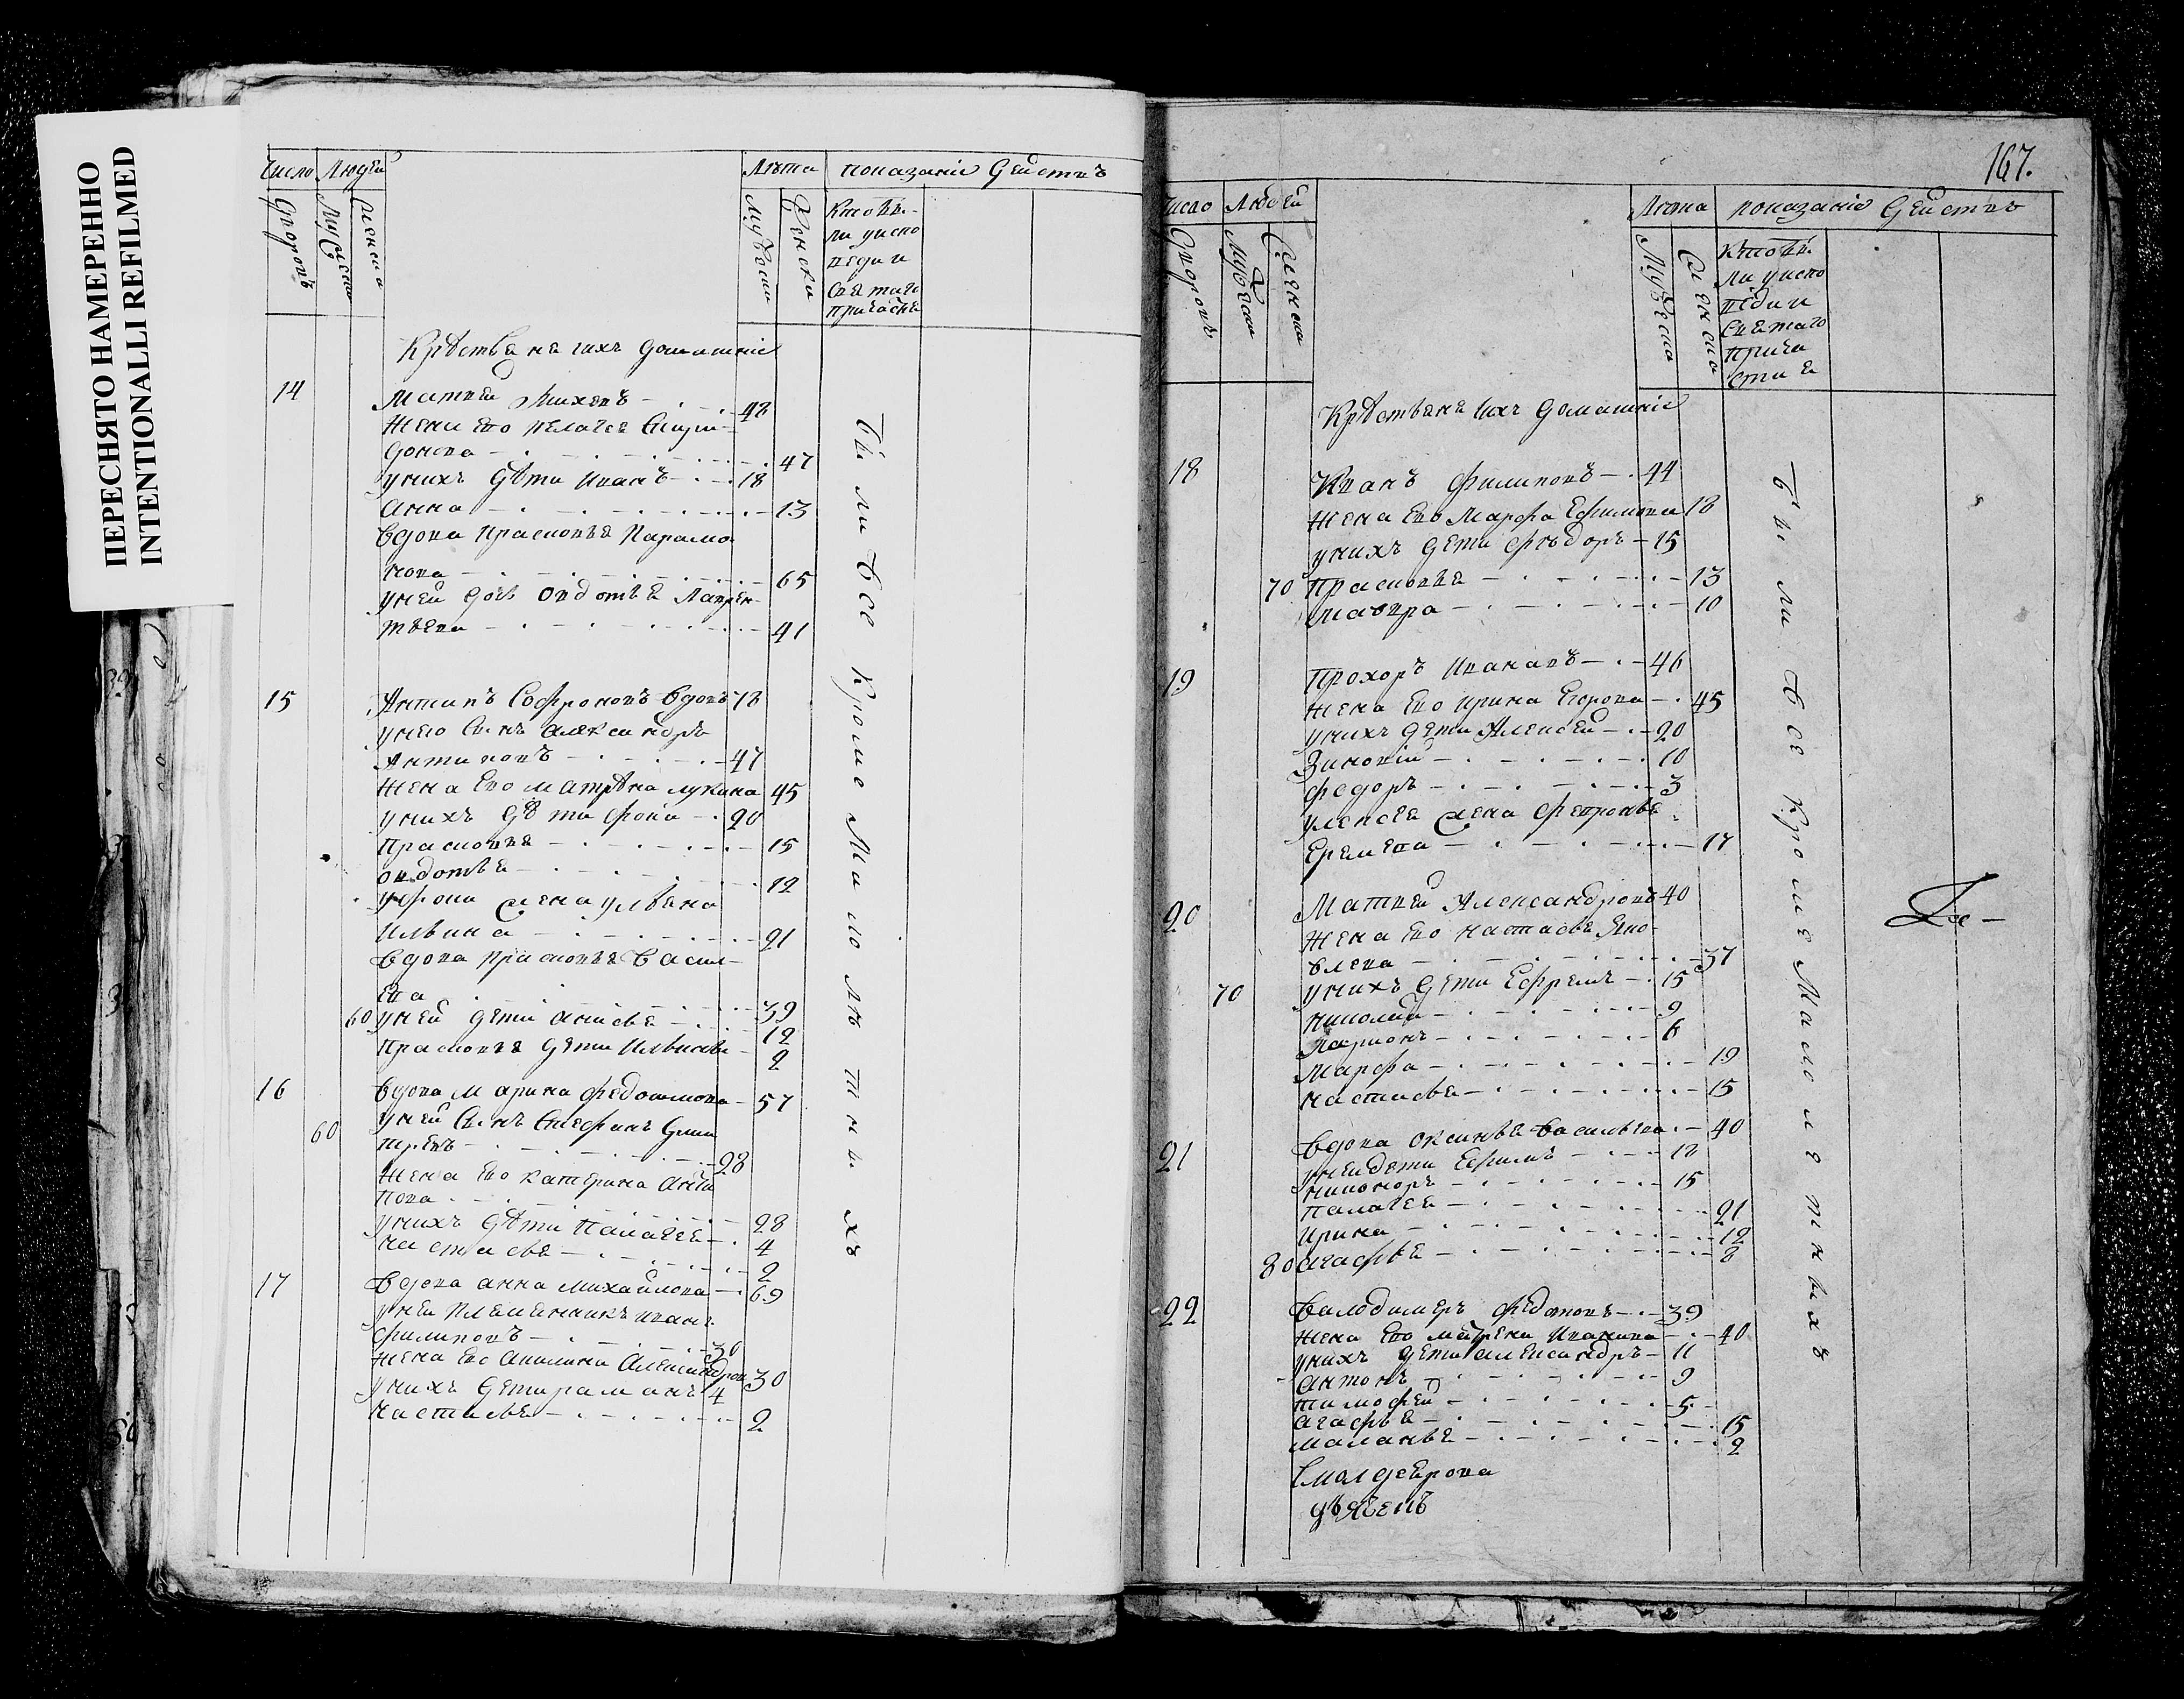 ПЕРЕСНЯТО НАМЕРЕННО
INTENTIONALLI REFILMED
Число Людей
Лѣта
показание Действъ
Дворовъ
Мужеска
Женска
Мужески
Женски
Кто бы-
ли у испо
веди и
Светаго
причастие
Крѣстьяне ихъ домашние
14
Матвей Михевъ 48
Жена ево Пелагеа Спири-
донова 47
у нихъ дѣти Иванъ 18
Анна 13
Вдова Прасковья Парамо
нова 65
у ней дочь Овдотья Лаврен-
тьева 41
15
Антипъ Софроновъ вдовъ 78
у нево Сынъ Александръ
Антиповъ 47
Жена ево Матрѣна Лукина 45
у нихъ дѣти Фока 20
Прасковья 15
Овдотья 12
у Фоки жена Ульяна
Ильина 21
Вдова Прасковья Васил-
ева 39
60 у ней дети Анисья 12
Прасковья дети Ильины 2
16
Вдова Марина Федосимова 57
60
у ней Сынъ Стефанъ Дми
триевъ 28
Жена ево Катерина Анти
пова 28
у нихъ дѣти Палагея 4
Настасья 2
17
Вдова Анна Михайлова 69
у ней племенникъ Иванъ
Филиповъ 30
Жена ево Акилина Александров 30
у нихъ дети Раманъ 4
Настасья 2
Были все Кроме Малолѣтныхъ
167.
Число Людей
Лѣта
показание Действъ
Дворовъ
Мужески
Женски
Мужеска
Женска
Кто бы
ли у испо
веди и
Светаго
Прича
стие
Крѣстьяне ихъ домашние
18
Иванъ Филиповъ 44
Жена ево Марфа Ефимова 18
у нихъ дети Фѣдоръ 15
70 Прасковья 13
Мавра 10
19
Прохоръ Ивановъ 46
Жена ево Ирина Егорова 45
у нихъ дети Алексей 20
Зиновий 10
Федоръ 3
у Алексея жена Февронья
Еремева 17
20
Матвей Александровъ 40
Жена ево Настасья Яко-
влева 37
70
у нихъ дети Ефремъ 15
Николай 9
Ларионъ 6
Марфа 19
Настасья 15
21
Вдова Оксинья Васильева 40
у ней дети Ефимъ 18
Никоноръ 15
Палагея 21
Ирина 12
80 Агафья 8
22
Валодимеръ Федотовъ 39
Жена ево Матрена Иванова 40
у нихъ дети Александръ 11
Антонъ 9
Тимофей 5
Агафья 15
Маланья 2
дьячекъ
Были все Кроме Малолетныхъ